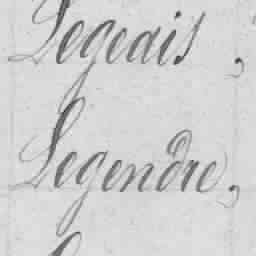 Legeais,
Legendre,